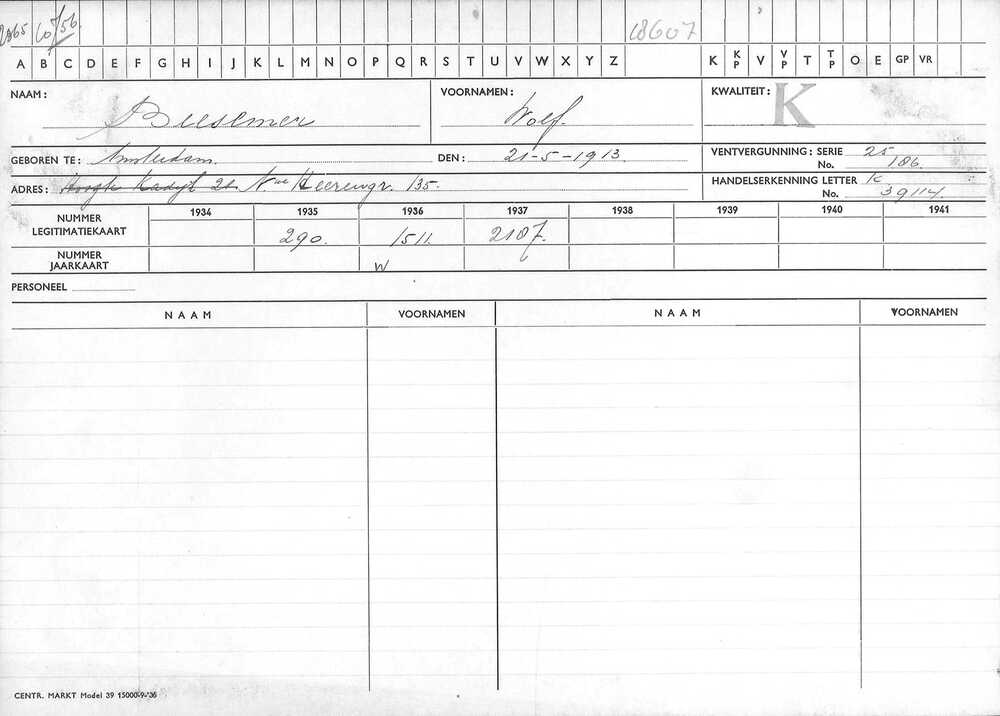 2965 60/56 18607
A B C D E F G H I J K L M N O P Q R S T U V W X Y Z K KP V VP T TP O E GP VR
NAAM: Beesemer VOORNAMEN: Wolf. KWALITEIT: K
GEBOREN TE: Amsterdam. DEN: 21-5-1913. VENTVERGUNNING: SERIE 25
No. 186.
ADRES: Hoogte Kadijk 26. Nwe Heerengr. 135. HANDELSERKENNING LETTER K
No. 39114.
1934 1935 1936 1937 1938 1939 1940 1941
NUMMER LEGITIMATIEKAART 290. 1511. 2187.
NUMMER JAARKAART W
PERSONEEL
NAAM VOORNAMEN NAAM VOORNAMEN
CENTR. MARKT Model 39 15000-9-'36